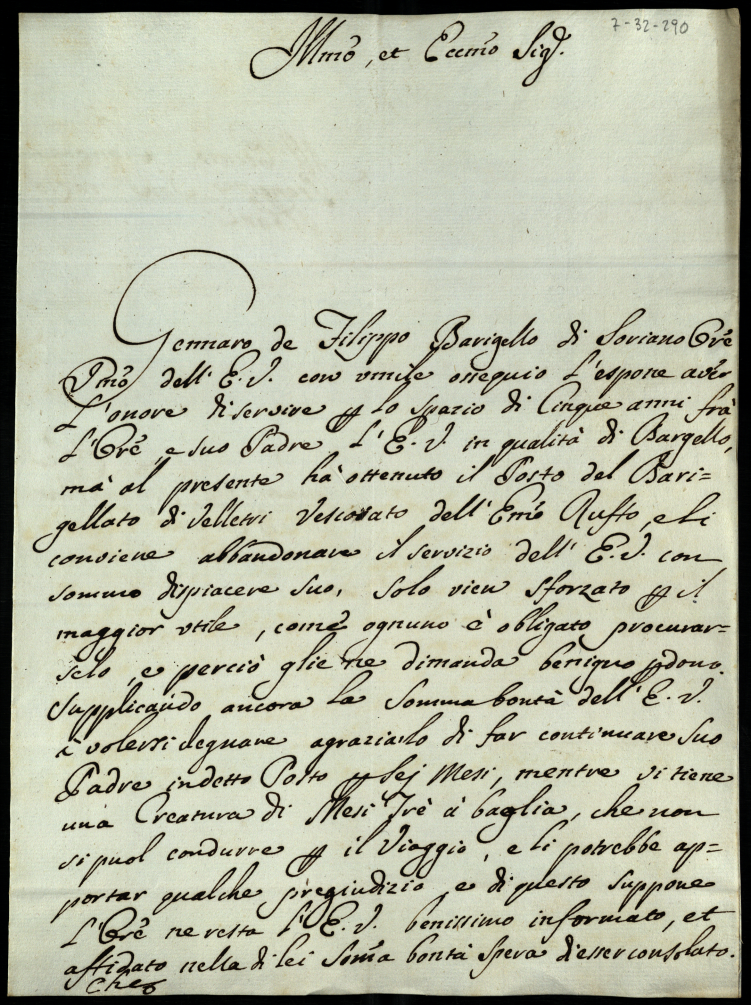 7-32-290
Illmõ, et Eccmõ Sig.r
Gennaro de Filippo Barigello di Soriano Orẽ
Vmõ dell' E. V. con vmile ossequio l'espone aver
L'onore di servire p lo spazio di Cinque anni frà
L'Orẽ, e suo Padre L'E. V. in qualità di Bargello,
mà al presente hà ottenuto il Posto del Bari=
gellato di Velletri Vescovato dell' Emõ Ruffo, e li
conviene abbandonare il servizio dell' E. V. con
sommo dispiacere suo, solo vien sforzato p il
maggior vtile, come ognuno è obligato procurar=
selo, e perciò glie ne dimanda benigno pdono.
Supplicando ancora la Somma bontà dell' E. V.
à volersi degnare agraziarlo di far continuare suo
Padre in detto Posto p sej Mesi, mentre vi tiene
una Creatura di Mesi Trè à baglia, che non
si puol condurre p il Viaggio, e li potrebbe ap=
portar qualche pregiudizio, e di questo suppone
L'Orẽ ne resta l'E. V. benissimo informato, et
affidato nella di lei Somã bontà spera d'esser consolato.
Che